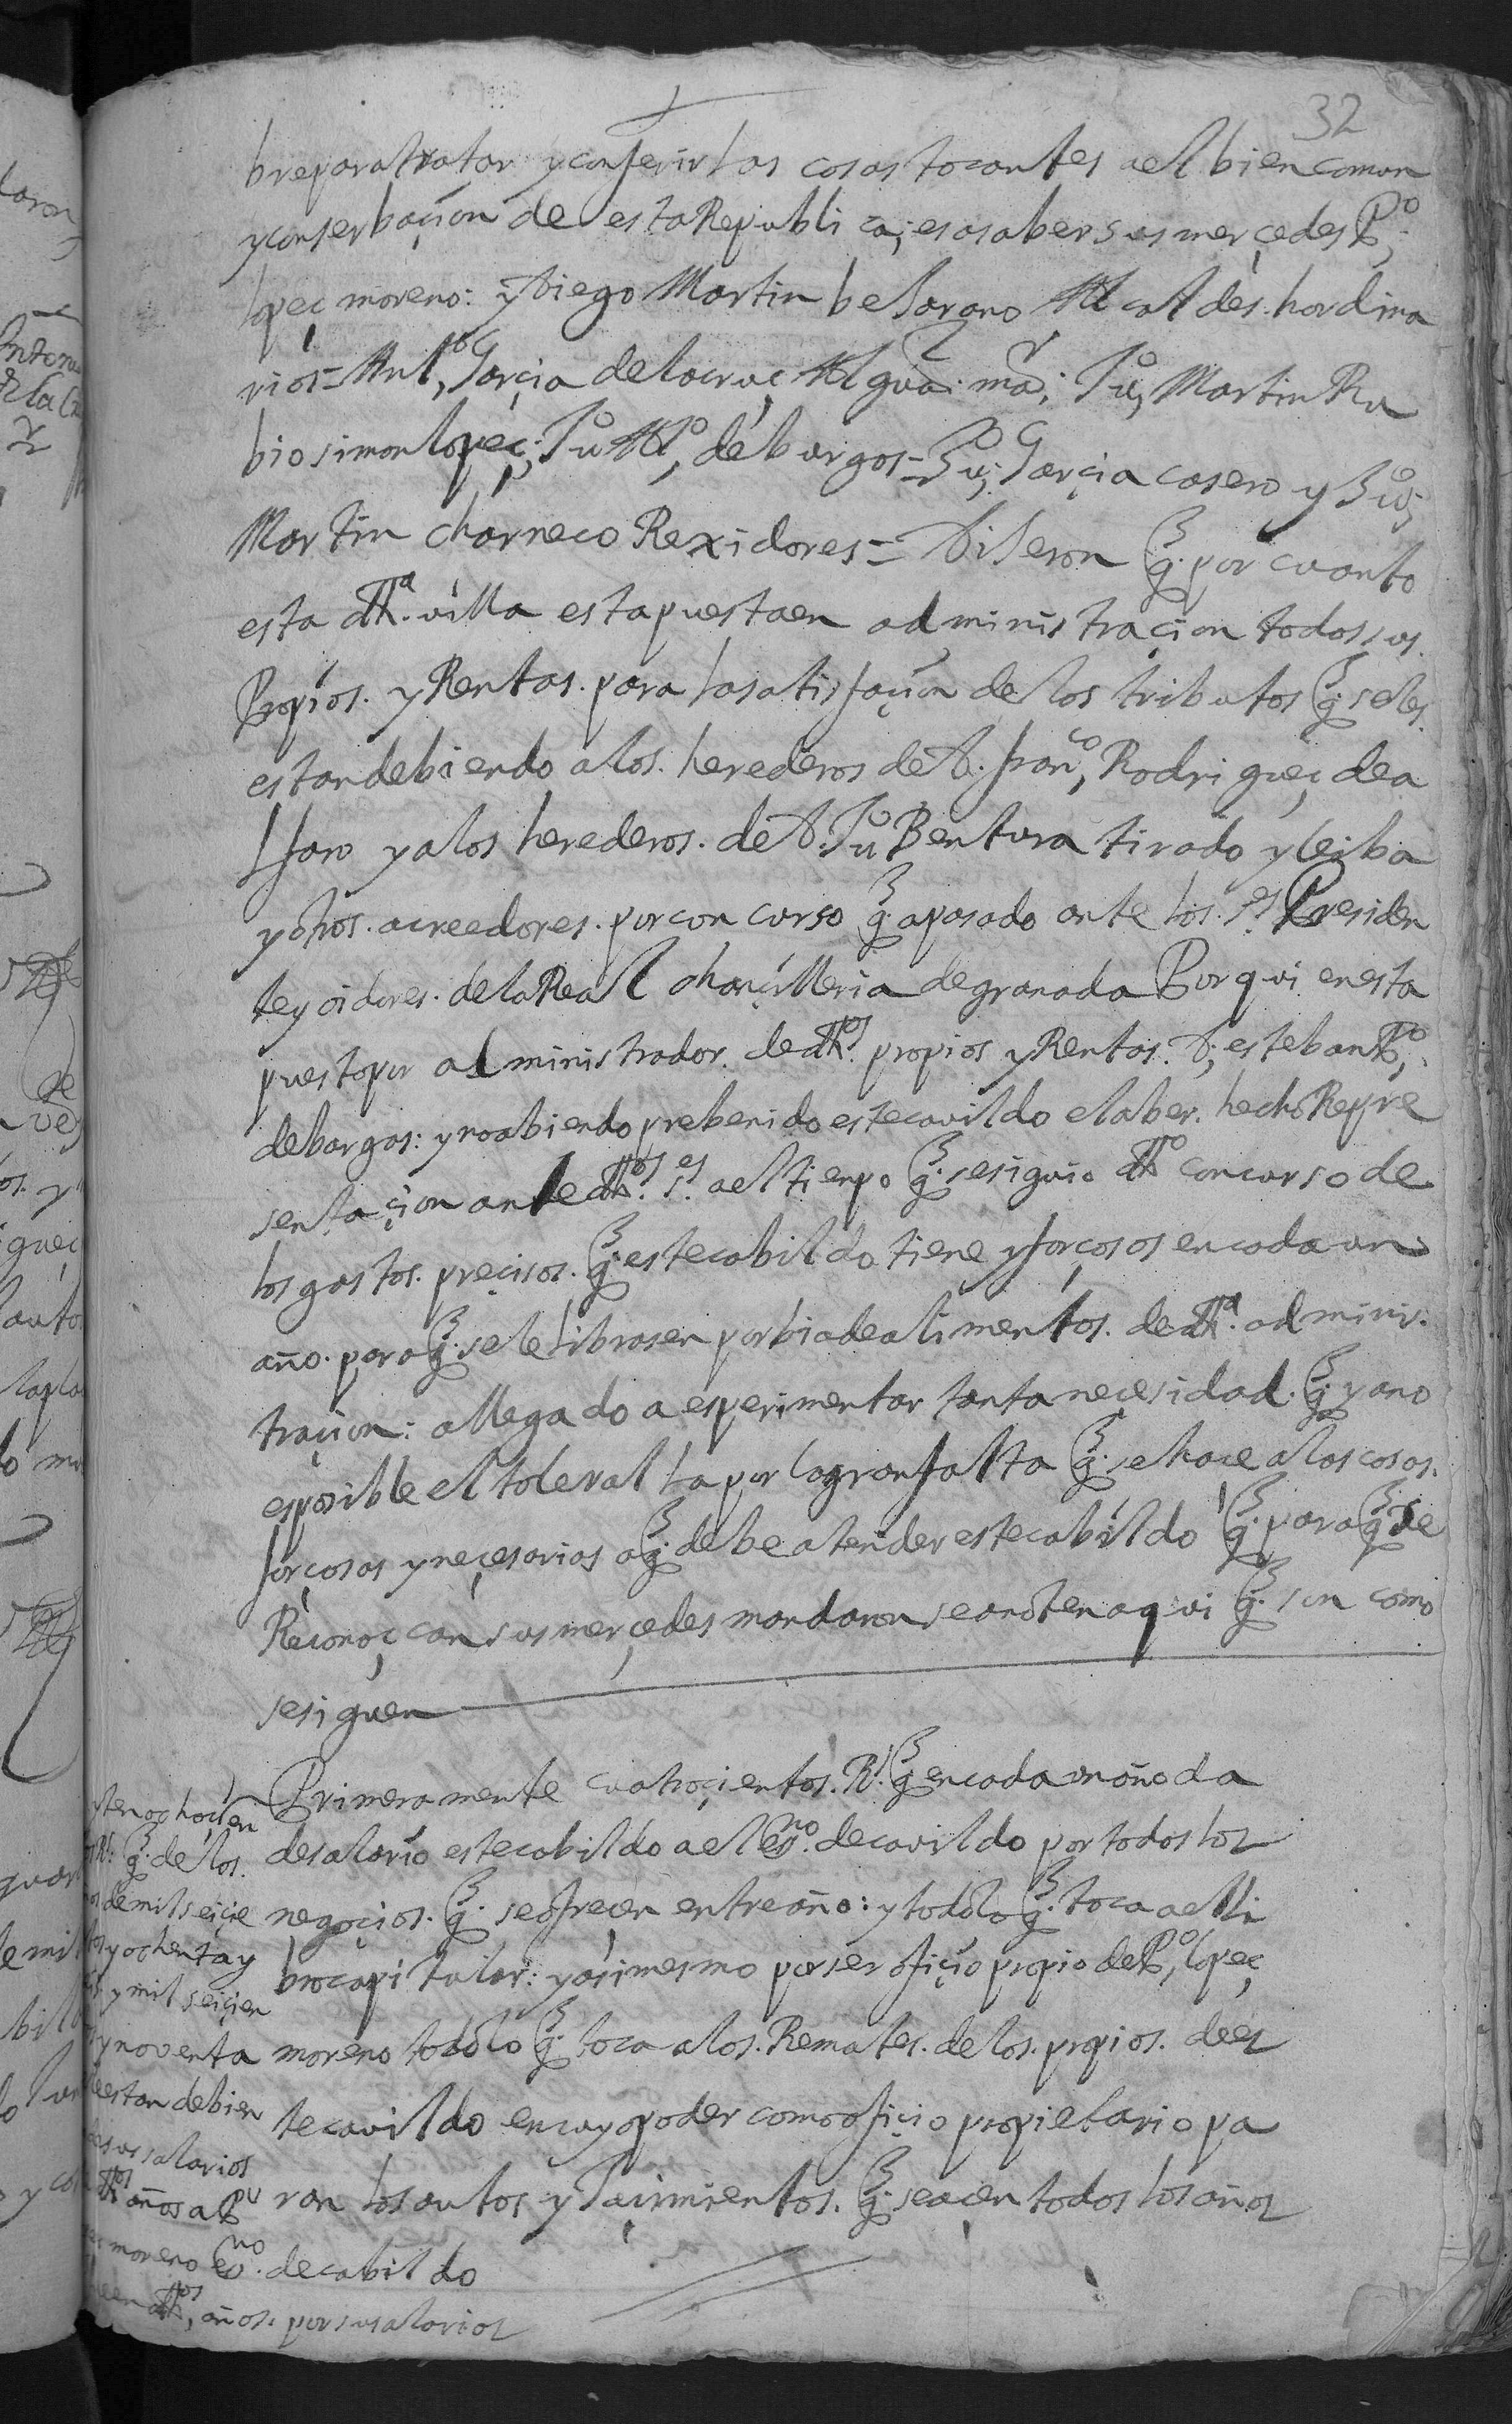 32
bre para tratar y conferir las cosas tocantes a el bien comun
y conserbaçion de esta Republica; es a saber sus merçedes P.º
lopeç moreno: y Diego Martin bejarano Alcaldes. hordina
rios = Ant.º Garçia de la cruç Alguaçil. mor; Ju.º Martin Ru
bio simon lopeç; Ju.º Al.º de burgos = Ju.º Garçia casero y Ju.º
Martin charneco Rexidores = Dijeron q. por cuanto
esta dha. villa esta puesta en administraçion todos sus.
Propios. y Rentas. para la satisfaçion de los tributos q. se les.
estan debiendo a los. herederos de D. fran.co Rodrigueç de a
lfaro y a los herederos. de D. Ju.º Bentura tirado y leiba
y otros. acreedores. por concurso q. a pasado ante los. s.es Presiden
te y oidores. de la Real chançilleria de granada Por qui en esta
puesto por administrador. de dhos. propios y Rentas. D. esteban P.º
de bargas: y no abiendo prebenido este cavildo el aber. hecho Repre
sentaçion ante dhos. s.es a el tiempo q. se siguio dho concurso de
los gastos. preçisos. q. este cabildo tiene y forçosos en cada un
año. para q. se le librasen por bia de alimentos. de dha. adminis.
traçion: a llegado a esperimentar tanta neçesidad. q. ya no
es posible el toleral la por la gran falta q. se hace a las cosas.
forçosas y neçesarias a q. debe atender este cabildo y q. para q. se
Reconoç can sus merçedes mandaron se anoten aqui q. son como
se siguen
Primeramente cuatroçientos. R.s q. en cada un año da
de salario este cabildo a el es.no de cavildo por todos los
negoçios. q. se ofreçen entre año: y todo lo q. toca a el li
bro capitular: y asimesmo por ser ofiçio propio de P.º lopeç
moreno todo lo q. toca a los. Remates. de los. propios. de es
te cavildo en cuyo poder como ofiçio propietario pa
ran los autos y haçimientos. q. se açen todos los años
yten ochoçien
R.s q. de los.
de mil seiçie
y ochenta y
y mil seiçien
y noventa
estan debien
sus salarios
dhos años a P.º
moreno es.no de cabildo
dhos, años. por su salarios